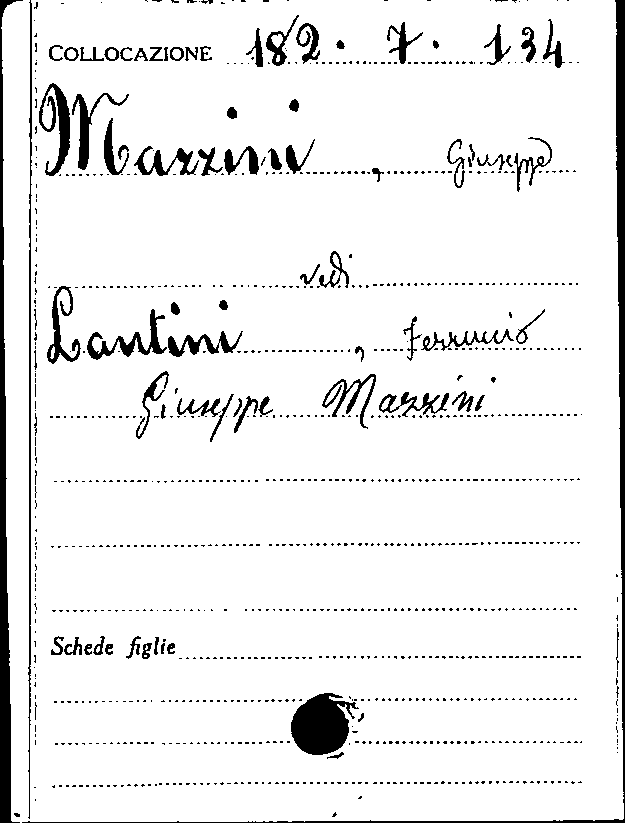 COLLOCAZIONE 182. 7. 134
Mazzini, Giuseppe
vedi
Lantini, Ferruccio
Giuseppe Mazzini
Schede figlie